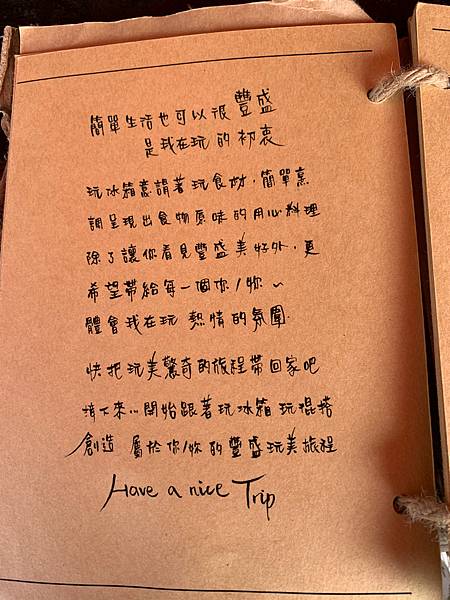 簡單生活也可以很豐盛
是我在玩的初衷
玩冰箱意謂著玩食材，簡單烹
調呈現出食物原味的用心料理
除了讓你看見豐盛美好外，更
希望帶給每一個你/妳～
體會我在玩 熱情的氛圍.
快把玩美驚奇的旅程帶回家吧
接下來...開始跟著玩冰箱 玩混搭
創造 屬於你/妳的豐盛玩美旅程
Have a nice Trip